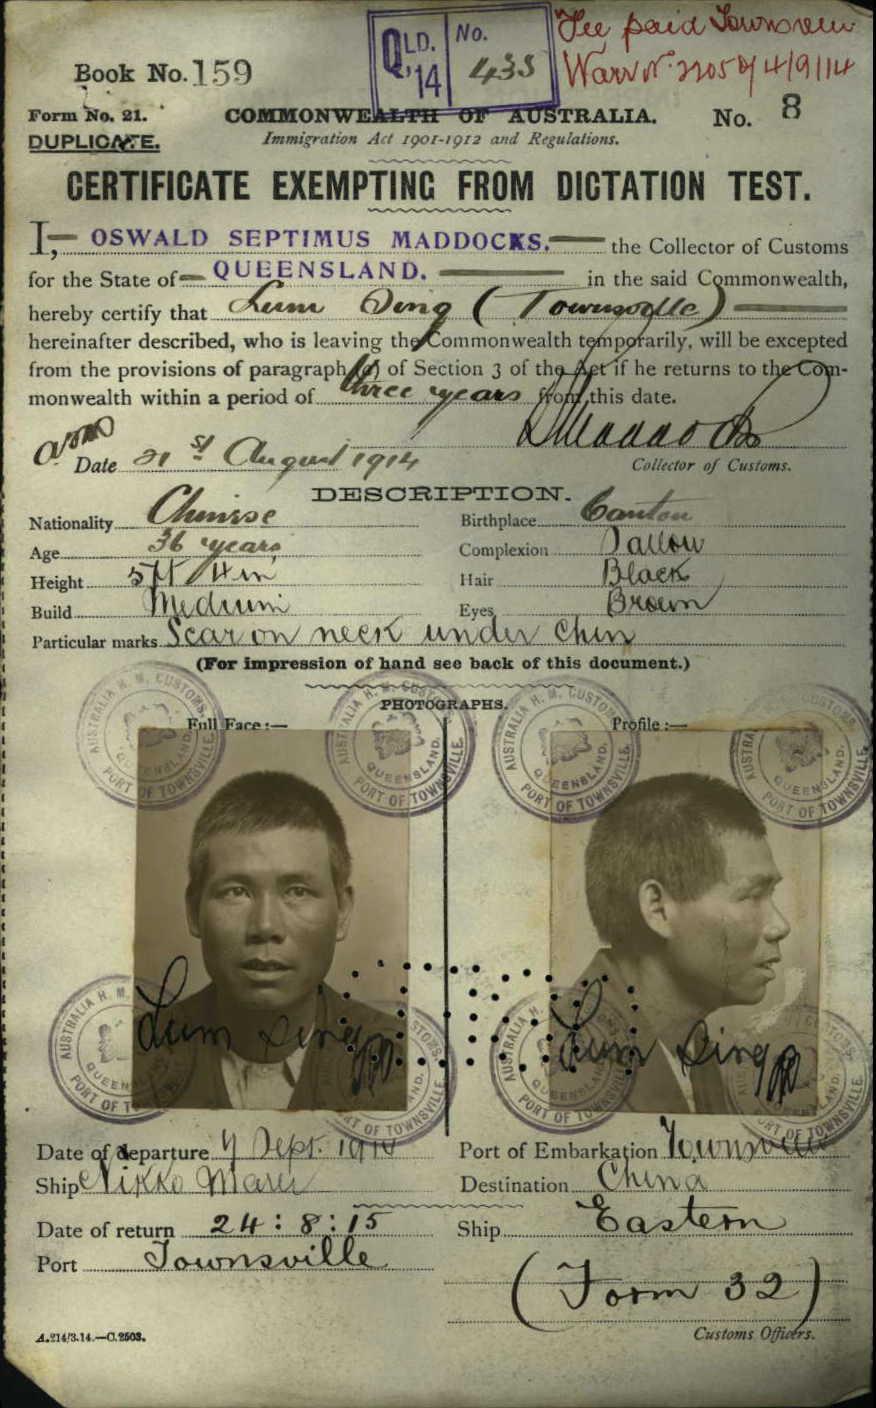 Fee paid Townsville
QLD. No.
'14 433
Warr No. 2205 of 4/9/14
Book No. 159
Form No. 21.
COMMONWEALTH OF AUSTRALIA.
No. 8
DUPLICATE.
Immigration Act 1901-1912 and Regulations.
CERTIFICATE EXEMPTING FROM DICTATION TEST.
I, OSWALD SEPTIMUS MADDOCKS. the Collector of Customs
for the State of QUEENSLAND. in the said Commonwealth,
hereby certify that Lum Sing (Townsville)
hereinafter described, who is leaving the Commonwealth temporarily, will be excepted
from the provisions of paragraph (a) of Section 3 of the Act if he returns to the Com-
monwealth within a period of three years from this date.
Date 21st August 1914
Collector of Customs.
DESCRIPTION.
Nationality Chinese Birthplace Canton
Age 36 years Complexion Sallow
Height 5ft 4in Hair Black
Build Medium Eyes Brown
Particular marks Scar on neck under Chin
(For impression of hand see back of this document.)
PHOTOGRAPHS.
Full Face :— Profile :—
AUSTRALIA H. M. CUSTOMS. QUEENSLAND. PORT OF TOWNSVILLE.
AUSTRALIA H. M. CUSTOMS. QUEENSLAND. PORT OF TOWNSVILLE.
AUSTRALIA H. M. CUSTOMS. QUEENSLAND. PORT OF TOWNSVILLE.
AUSTRALIA CUSTOMS. QUEENSLAND. PORT OF TOWNSVILLE.
Lum Sing Lum Sing
Date of departure 7 Sept. 1914 Port of Embarkation Townsville
Ship Nikko Maru Destination China
Date of return 24:8:15 Ship Eastern
Port Townsville
(Form 32)
A.214/3.14.—C.2503. Customs Officers.